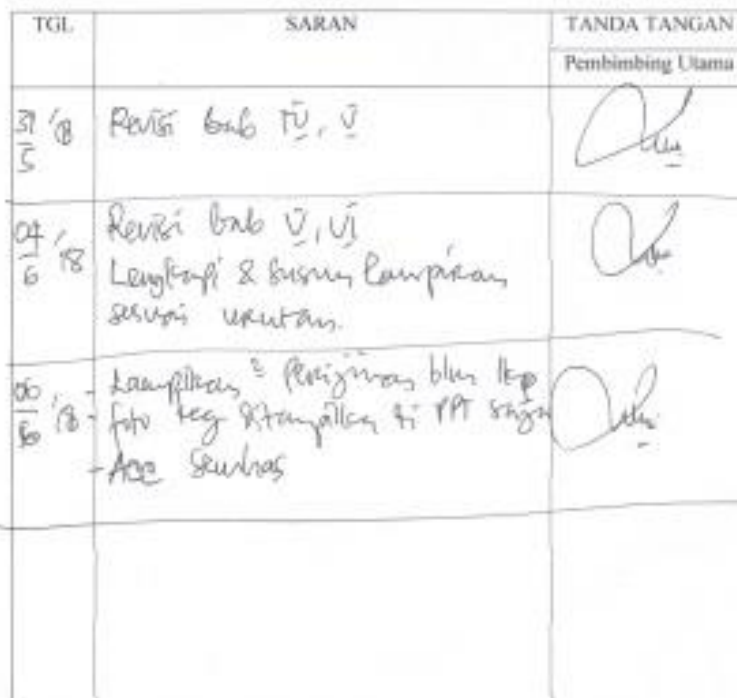 TGL SARAN TANDA TANGAN
Pembimbing Utama
31/5 '18 Revisi bab IV, V
04/6 '18 Revisi bab V, VI
Lengkapi & susun lampiran
sesuai urutan.
06/6 '18 - Lampiran² Perijinan blm lkp
- foto keg ditampilkan di PPT saja
- ACC Semhas